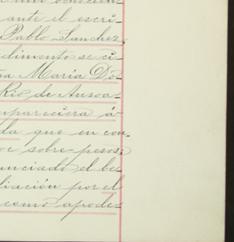 ante el escri-
Pablo Sanchez,
dimento se ci-
Maria Do-
Rio de Ansoa-
mpareciera á
da que en con-
sobre pesos
unciado el be-
liación por el
como apode-